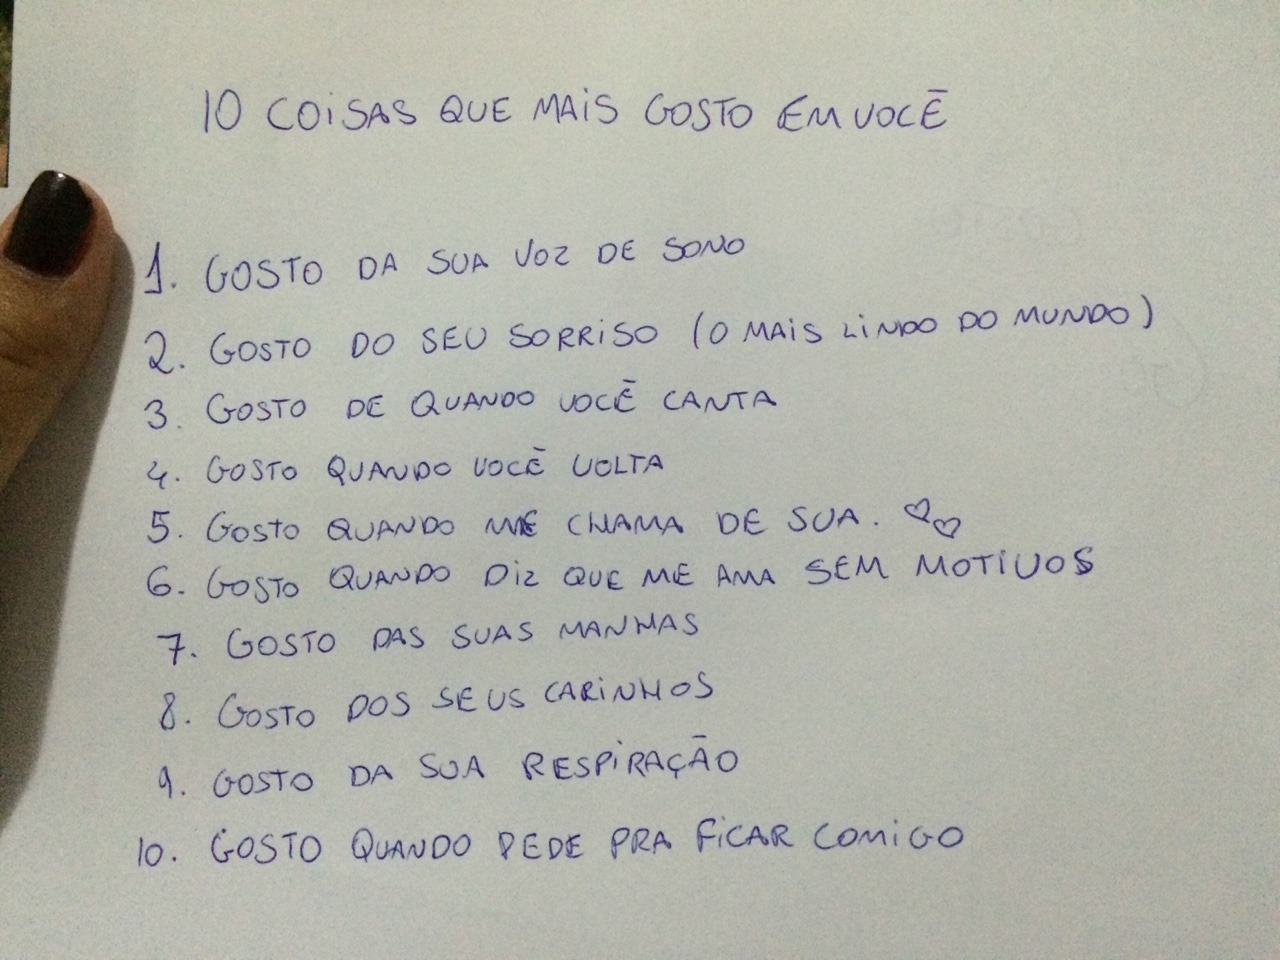 10 COISAS QUE MAIS GOSTO EM VOCÊ
1. GOSTO DA SUA VOZ DE SONO
2. GOSTO DO SEU SORRISO (O MAIS LINDO DO MUNDO)
3. GOSTO DE QUANDO VOCÊ CANTA
4. GOSTO QUANDO VOCÊ VOLTA
5. GOSTO QUANDO ME CHAMA DE SUA. ♡♡
6. GOSTO QUANDO DIZ QUE ME AMA SEM MOTIVOS
7. GOSTO DAS SUAS MANHAS
8. GOSTO DOS SEUS CARINHOS
9. GOSTO DA SUA RESPIRAÇÃO
10. GOSTO QUANDO PEDE PRA FICAR COMIGO